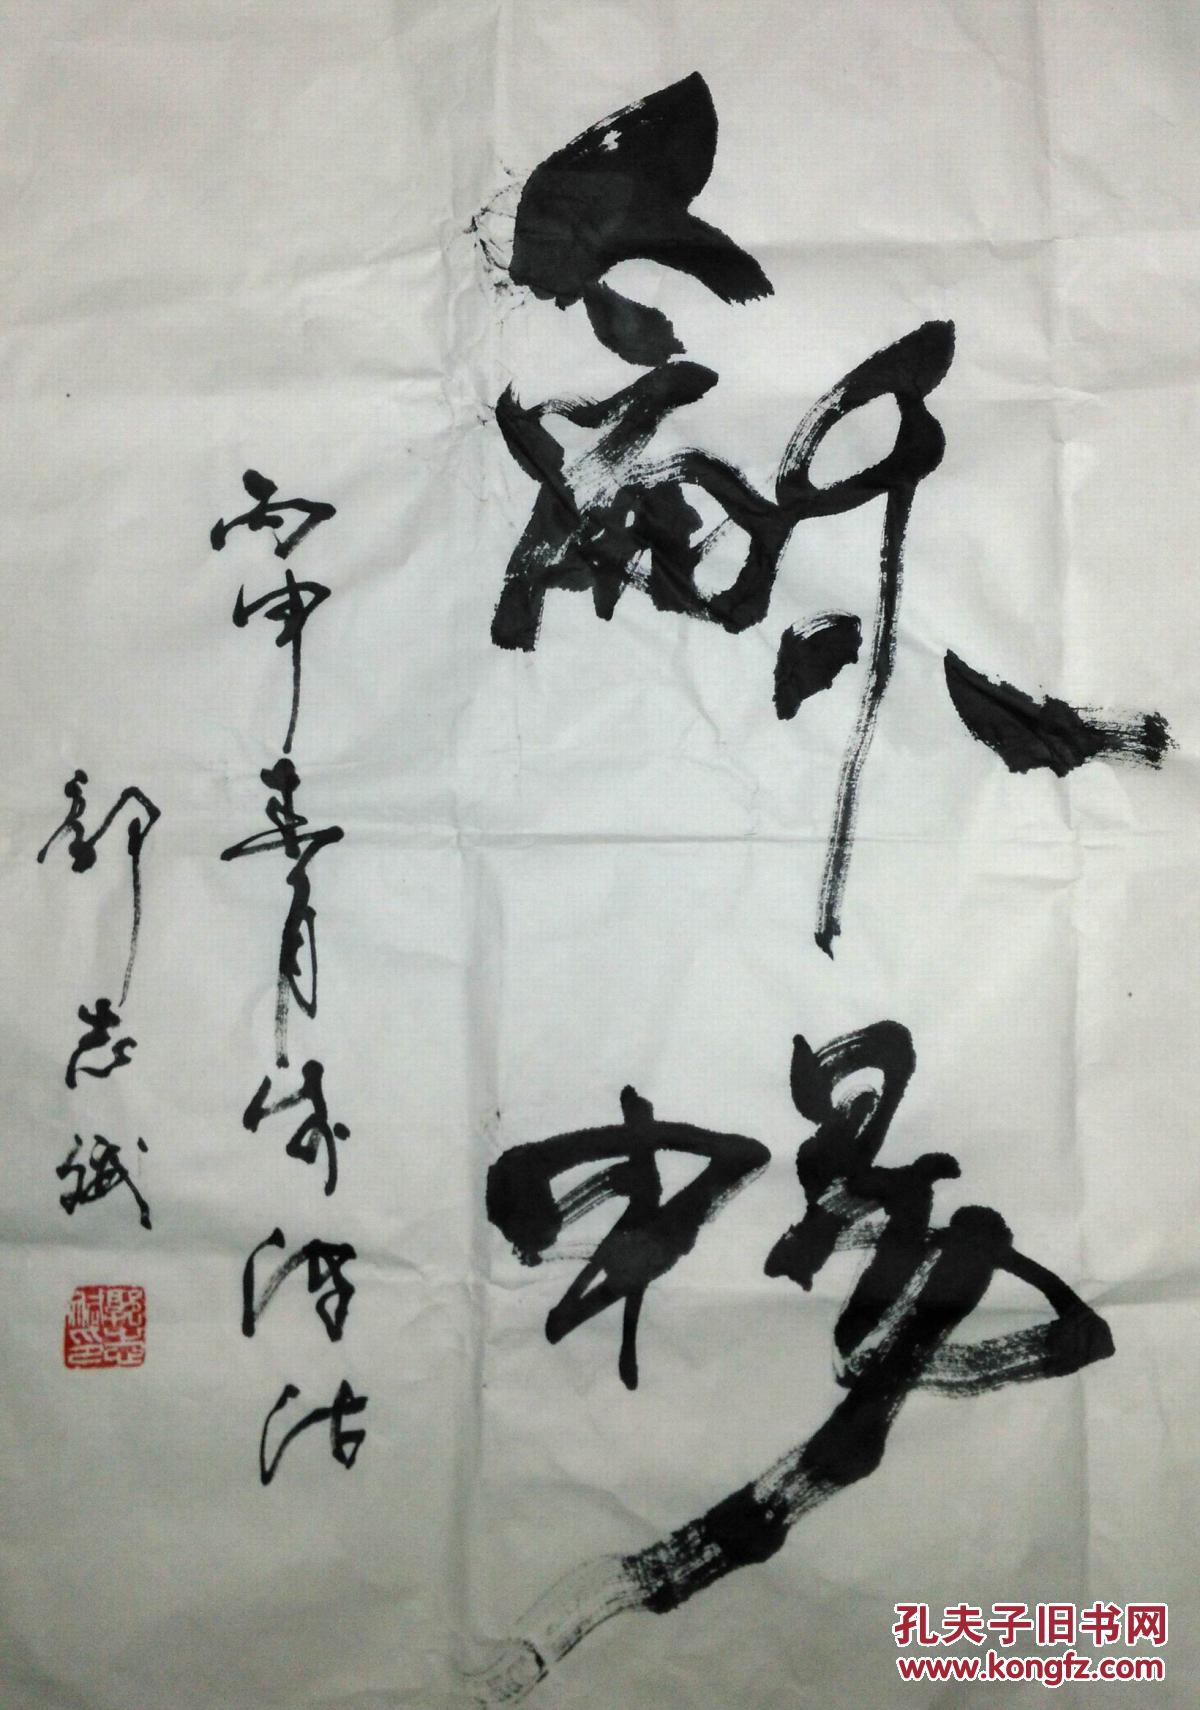 龢暢
丙申春月於津沽
郭志斌
孔夫子旧书网
www.kongfz.com